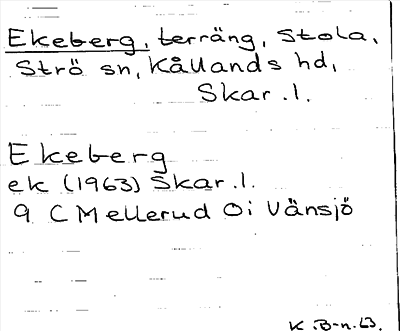 Ekeberg, terräng, Stola,
Strö sn, Kållands hd,
Skar.l.
Ekeberg
ek (1963) Skar.l.
9 C Mellerud 0i Vänsjö
K.B-n.63.